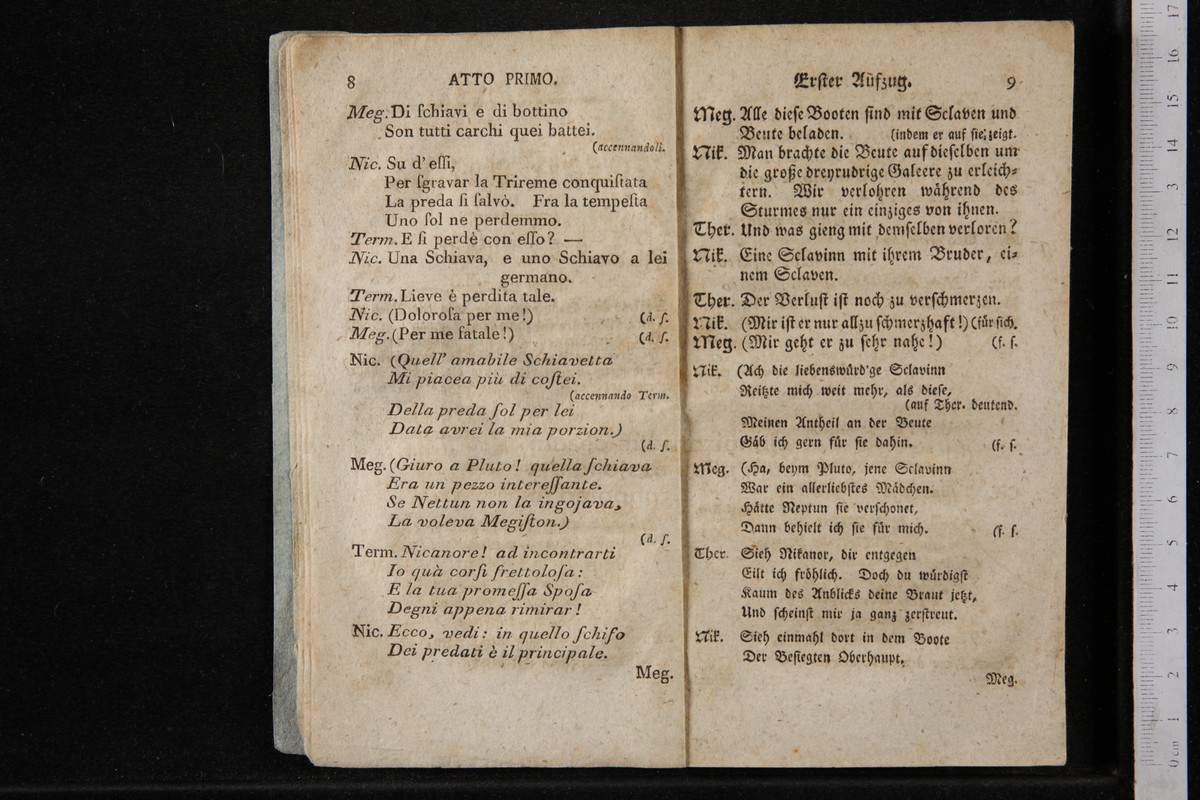 8 ATTO PRIMO.
Meg. Di ſchiavi e di bottino
Son tutti carchi quei battei.
(accennandoli.
Nic. Su d' eſſi,
Per ſgravar la Trireme conquiſtata
La preda ſi ſalvò. Fra la tempeſta
Uno ſol ne perdemmo.
Term. E ſi perdè con eſſo? —
Nic. Una Schiava, e uno Schiavo a lei
germano.
Term. Lieve è perdita tale.
Nic. (Doloroſa per me!) (d. ſ.
Meg. (Per me fatale!) (d. ſ.
Nic. (Quell' amabile Schiavetta
Mi piacea più di coſtei.
(accennando Term.
Della preda ſol per lei
Data avrei la mia porzion.)
(d. ſ.
Meg. (Giuro a Pluto! quella ſchiava
Era un pezzo intereſſante.
Se Nettun non la ingojava,
La voleva Megiſton.)
(d. ſ.
Term. Nicanore! ad incontrarti
Io quà corſi frettoloſa:
E la tua promeſſa Spoſa
Degni appena rimirar!
Nic. Ecco, vedi: in quello ſchifo
Dei predati è il principale.
Meg.
Erſter Aufzug. 9
Meg. Alle dieſe Booten ſind mit Sclaven und
Beute beladen. (indem er auf ſie zeigt.
Nik. Man brachte die Beute auf dieſelben um
die große dreyrudrige Galeere zu erleich⸗
tern. Wir verlohren während des
Sturmes nur ein einziges von ihnen.
Ther. Und was gieng mit demſelben verloren?
Nik. Eine Sclavinn mit ihrem Bruder, ei⸗
nem Sclaven.
Ther. Der Verluſt iſt noch zu verſchmerzen.
Nik. (Mir iſt er nur allzu ſchmerzhaft!) (für ſich.
Meg. (Mir geht er zu ſehr nahe!) (f. ſ.
Nik. (Ach die liebenswürd'ge Sclavinn
Reitzte mich weit mehr, als dieſe,
(auf Ther. deutend.
Meinen Antheil an der Beute
Gäb ich gern für ſie dahin. (f. ſ.
Meg. (Ha, beym Pluto, jene Sclavinn
War ein allerliebſtes Mädchen.
Hätte Neptun ſie verſchonet,
Dann behielt ich ſie für mich. (f. ſ.
Ther. Sieh Nikanor, dir entgegen
Eilt ich fröhlich. Doch du würdigſt
Kaum des Anblicks deine Braut jetzt,
Und ſcheinſt mir ja ganz zerſtreut.
Nik. Sieh einmahl dort in dem Boote
Der Beſiegten Oberhaupt.
Meg.
0 cm 1 2 3 4 5 6 7 8 9 10 11 12 13 14 15 16 17